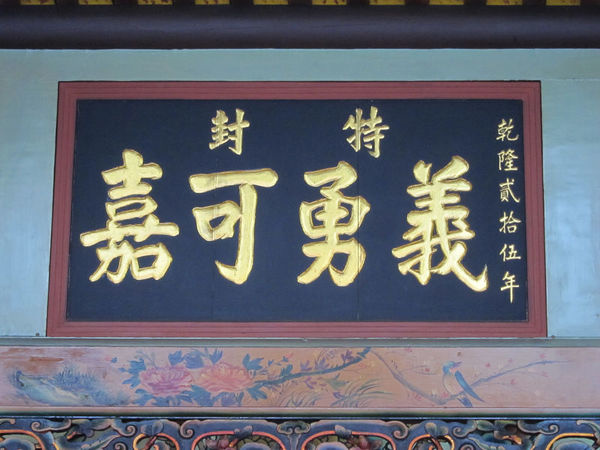 乾隆貳拾伍年
特封
義勇可嘉